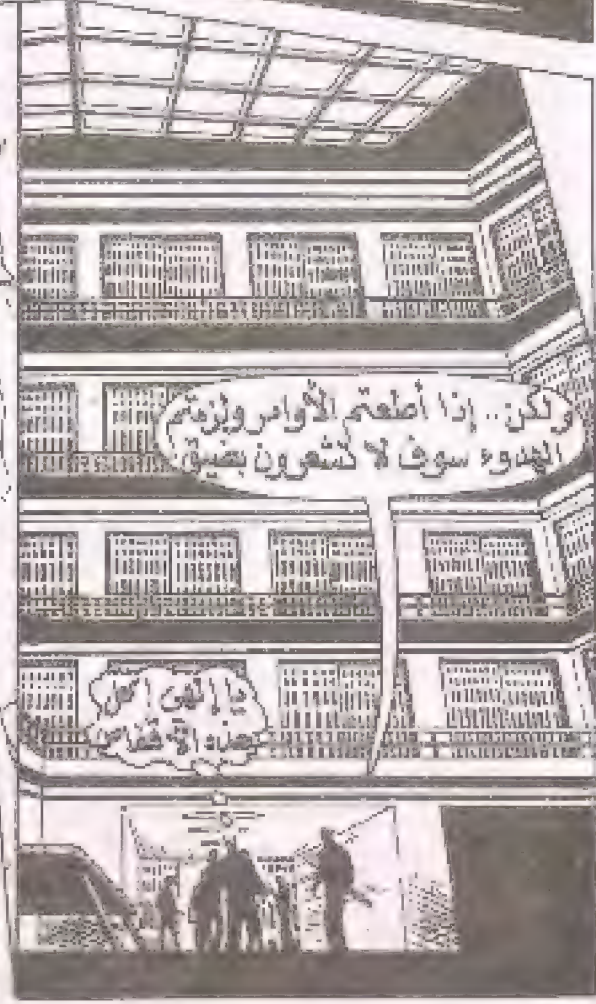 ولكن.. إذا أطعتم الأوامر ولزمتم
الهدوء سوف لا تشعرون بضيق
يا إلهى
هذه الأقفاص